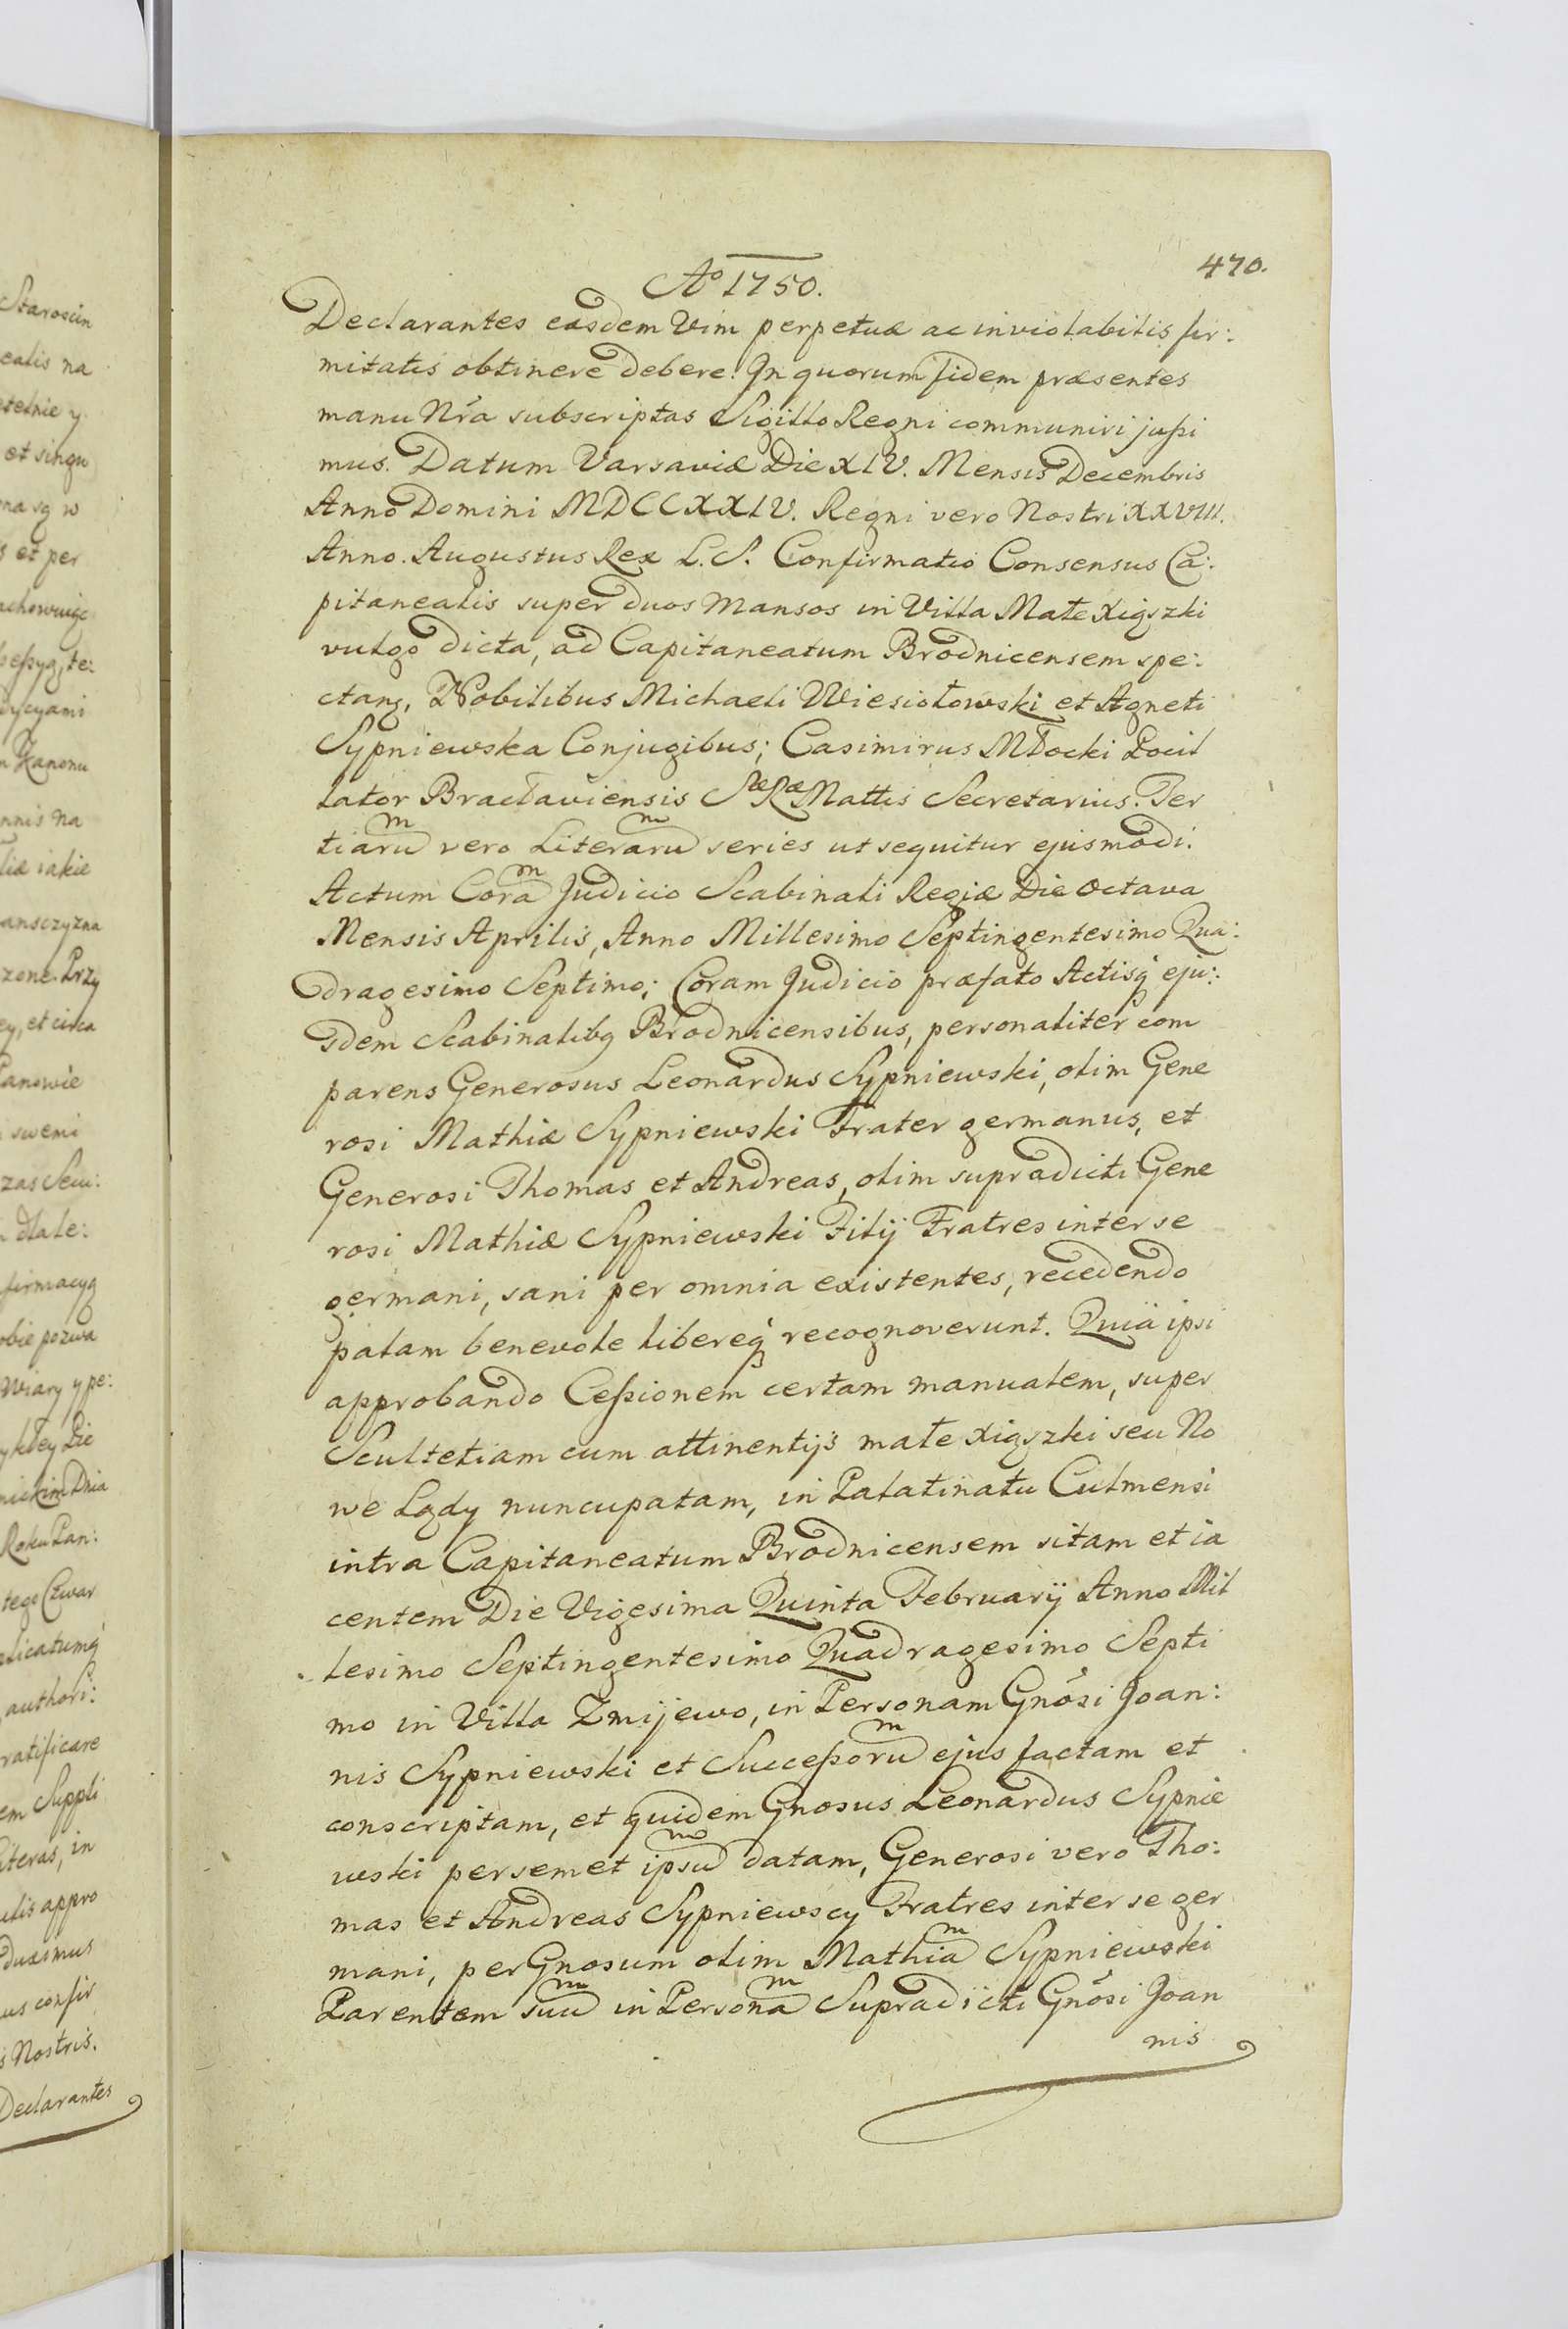 470.
Aº 1750.
Declarantes easdem Vim perpetuæ ac inviolabilis fir:
mitatis obtinere debere. In quorum fidem præsentes
manu Nr̃a subscriptas Sigillo Regni communiri jußi
mus. Datum Varsaviæ Die XIV. Mensis Decembris
Anno Domini MDCCXXIV. Regni vero Nostri XXVIII.
Anno. Augustus Rex L. S. Confirmatio Consensus Ca:
pitanealis super duos Mansos in Villa Małe Xigszki
vulgo dicta, ad Capitaneatum Brodnicensem spe:
ctans, Nobilibus Michaeli Wiesiołowski et Agneti
Sypniewska Conjugibus; Casimirus Młocki Pocil
lator Bracłaviensis SæRæ Mattis Secretarius. Ter
tiarum vero Literarum series ut sequitur ejusmodi.
Actum Coram Judicio Scabinali Regiæ Die Octava
Mensis Aprilis, Anno Millesimo Septingentesimo Qua:
dragesimo Septimo; Coram Judicio præfato Actisq́ eju:
sdem Scabinalibq Brodnicensibus, personaliter com
parens Generosus Leonardus Sypniewski, olim Gene
rosi Mathiæ Sypniewski Frater germanus, et
Generosi Thomas et Andreas, olim supradicti Gene
rosi Mathiæ Sypniewski Filij Fratres inter se
germani, sani per omnia existentes, recedendo
palam benevole libereq́ recognoverunt. Quia ipsi
approbando Ceßionem certam manualem, super
Scultetiam cum attinentijs małe Xigszki seu No
we Lądy nuncupatam, in Palatinatu Culmensi
intra Capitaneatum Brodnicensem sitam et ia
centem Die Vigesima Quinta Februarij Anno Mil
lesimo Septingentesimo Quadragesimo Septi
mo in Villa Zmijewo, in Personam Gnősi Joan:
nis Sypniewski et Succeßorum ejus factam et
conscriptam, et quidem Gnosus Leonardus Sypnie
wski persemet ipsum datam, Generosi vero Tho:
mas et Andreas Sypniewscy Fratres inter se ger
mani, per Gnosum olim Mathiam Sypniewski
Parentem suum in Personam Supradicti Gnősi Joan
nis